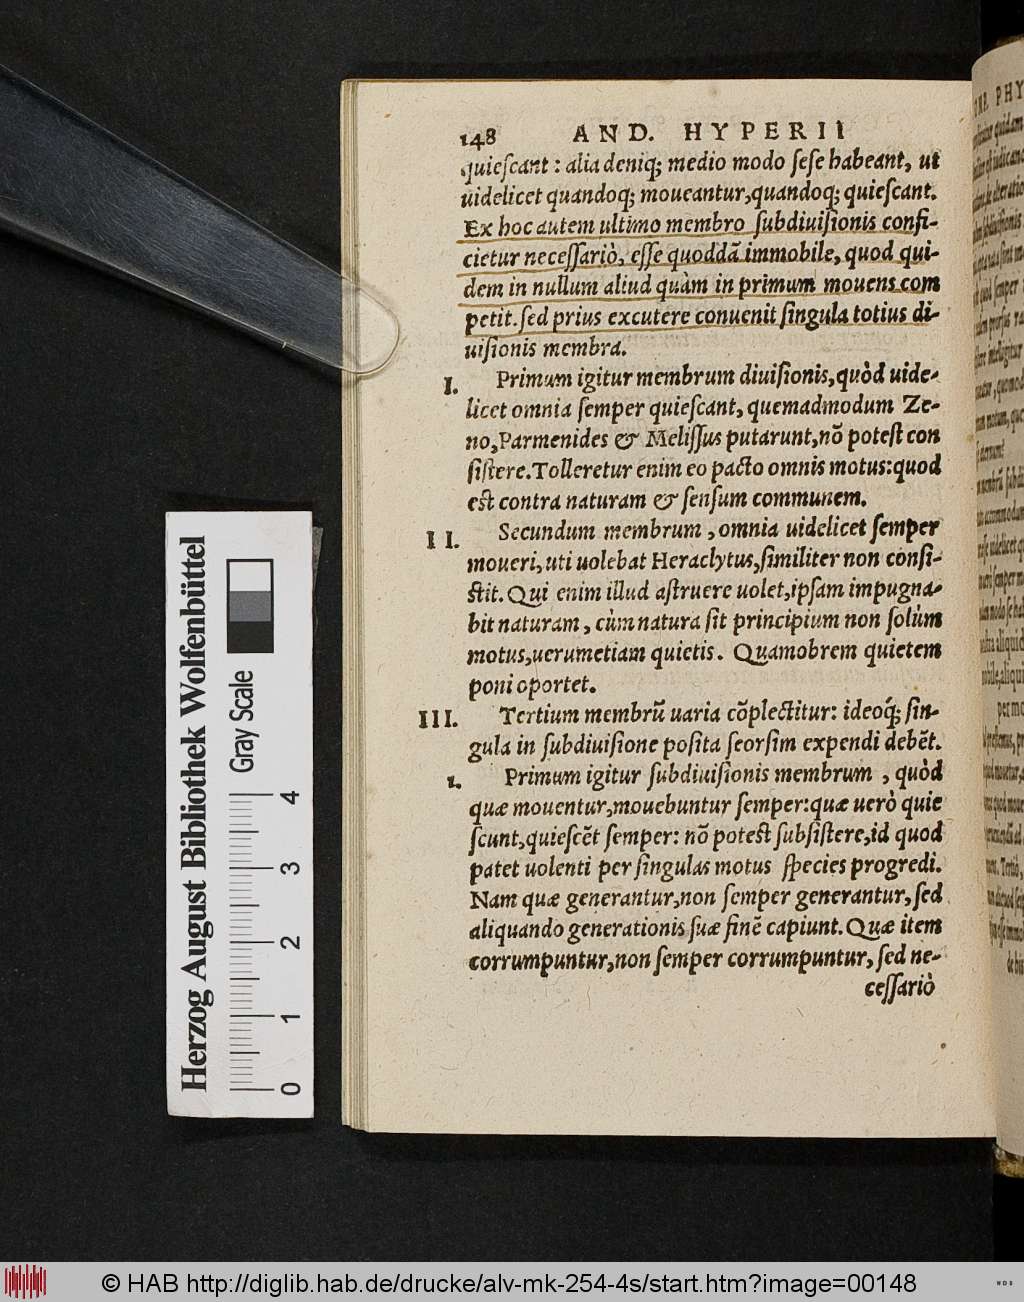 148 AND. HYPERII
quieſcant : alia deniq; medio modo ſeſe habeant, ut
uidelicet quandoq; moueantur, quandoq; quieſcant.
Ex hoc autem ultimo membro ſubdiuiſionis confi-
cietur neceſſariò, eſſe quoddã immobile, quod qui-
dem in nullum aliud quàm in primum mouens com
petit. ſed prius excutere conuenit ſingula totius di-
uiſionis membra.
I. Primum igitur membrum diuiſionis, quòd uide-
licet omnia ſemper quieſcant, quemadmodum Ze-
no, Parmenides & Meliſſus putarunt, nõ poteſt con
ſiſtere. Tolleretur enim eo pacto omnis motus: quod
est contra naturam & ſenſum communem.
II. Secundum membrum, omnia uidelicet ſemper
moueri, uti uolebat Heraclytus, ſimiliter non conſi-
ſtit. Qui enim illud aſtruere uolet, ipſam impugna-
bit naturam, cùm natura ſit principium non ſolùm
motus, uerumetiam quietis. Quamobrem quietem
poni oportet.
III. Tertium membrũ uaria cõplectitur: ideoq́; ſin-
gula in ſubdiuiſione poſita ſeorſim expendi debẽt.
1. Primum igitur ſubdiuiſionis membrum, quòd
quæ mouentur, mouebuntur ſemper: quæ uerò quie
ſcunt, quieſcẽt ſemper: nõ poteſt ſubſiſtere, id quod
patet uolenti per ſingulas motus ſpecies progredi.
Nam quæ generantur, non ſemper generantur, ſed
aliquando generationis ſuæ finẽ capiunt. Quæ item
corrumpuntur, non ſemper corrumpuntur, ſed ne-
ceſſariò
Herzog August Bibliothek Wolfenbüttel
Gray Scale
0 1 2 3 4
© HAB http://diglib.hab.de/drucke/alv-mk-254-4s/start.htm?image=00148